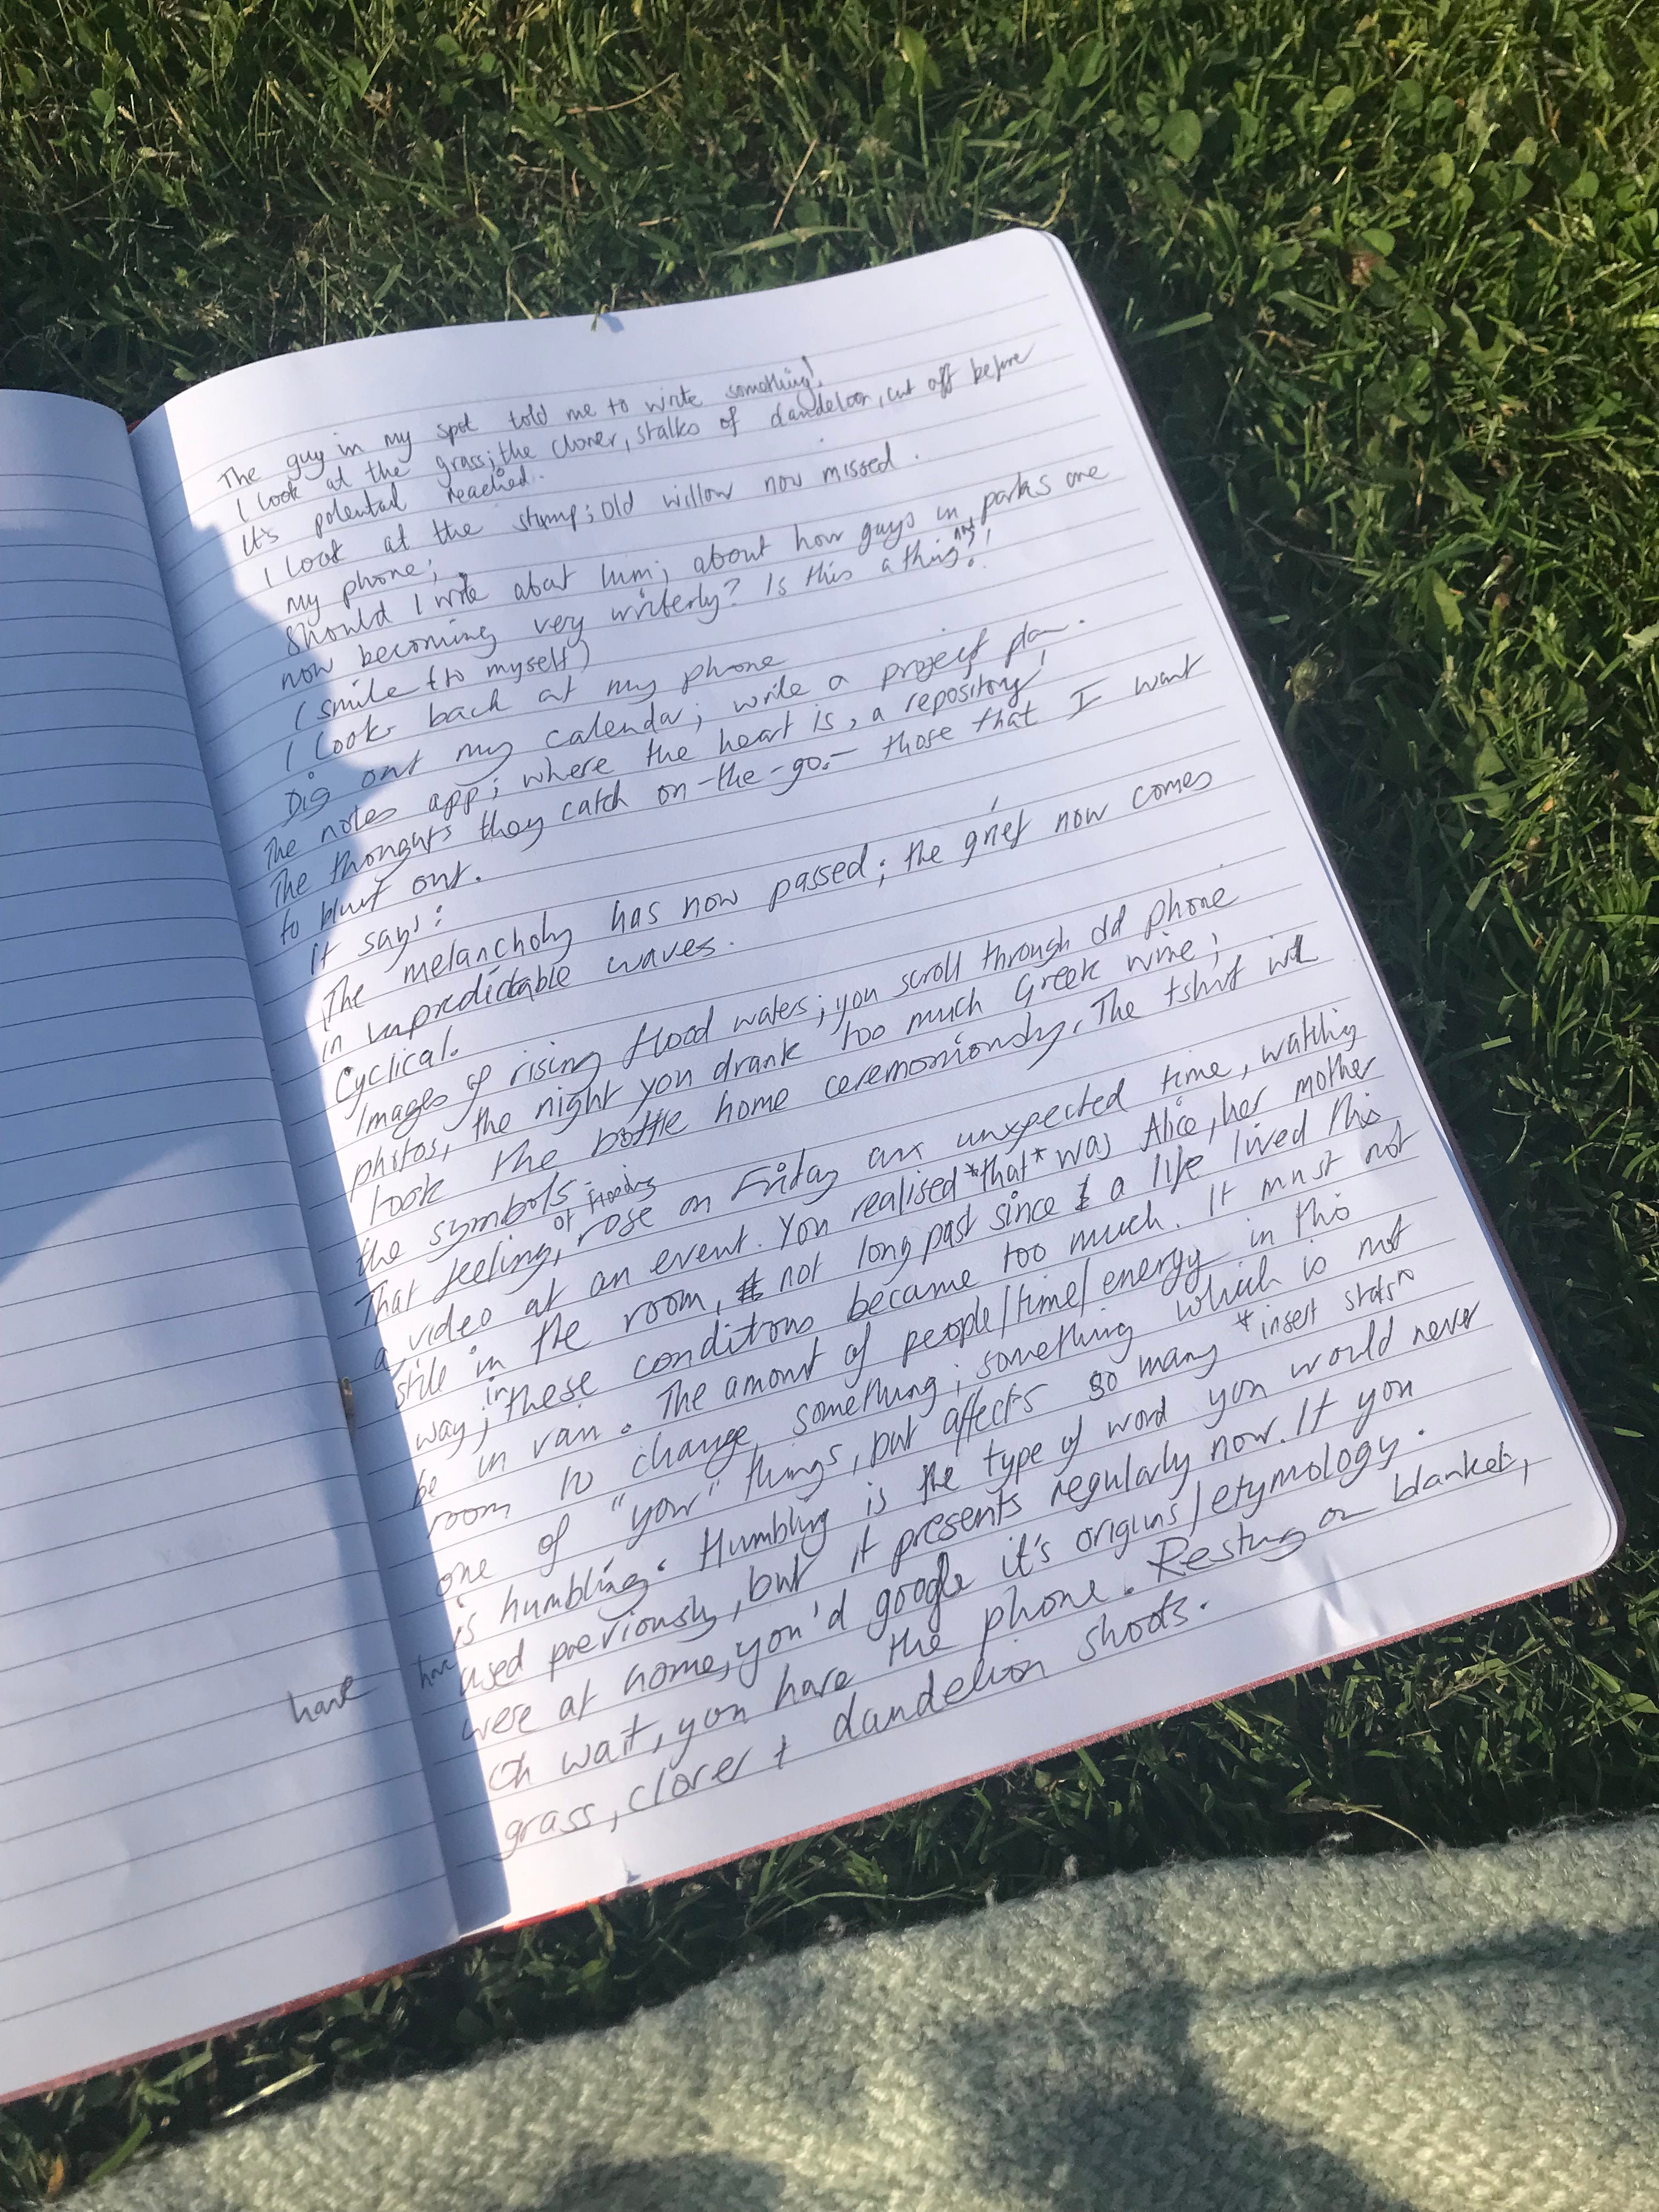 The guy in my spot told me to write something!
I look at the grass; the clover, stalks of dandeloin, cut off before
it's potential reached.
I look at the stump; old willow now missed.
My phone;
Should I write about him; about how guys in parks are
now becoming very writerly? Is this a thing now?!
(smile (to myself)
I look back at my phone
Dig out my calendar; write a project plan.
The notes app; where the heart is, a repository!
The thoughts they catch on-the-go - those that I want
to blurt out.
It says:
The melancholy has now passed; the grief now comes
in unpredictable waves.
Cyclical.
Images of rising flood waters; you scroll through old phone
photos, the night you drank too much Greek wine;
took the bottle home ceremoniously. The tshirt with
the symbols.
That feeling, of flooding rose on Friday an unxpected time, watching
a video at an event. You realised *that* was Alice, her mother
still in the room, not long past since a life lived this
way; in these conditions became too much. It must not
be in vain. The amount of people/time/energy in this
room to change something; something which is not
one of "your" things, but affects so many *insert stats*
is humbling. Humbling is the type of word you would never
have have used previously, but it presents regularly now. If you
were at home, you'd google it's origins/etymology.
Oh wait, you have the phone. Resting on blanket,
grass, clover + dandelion shoots.